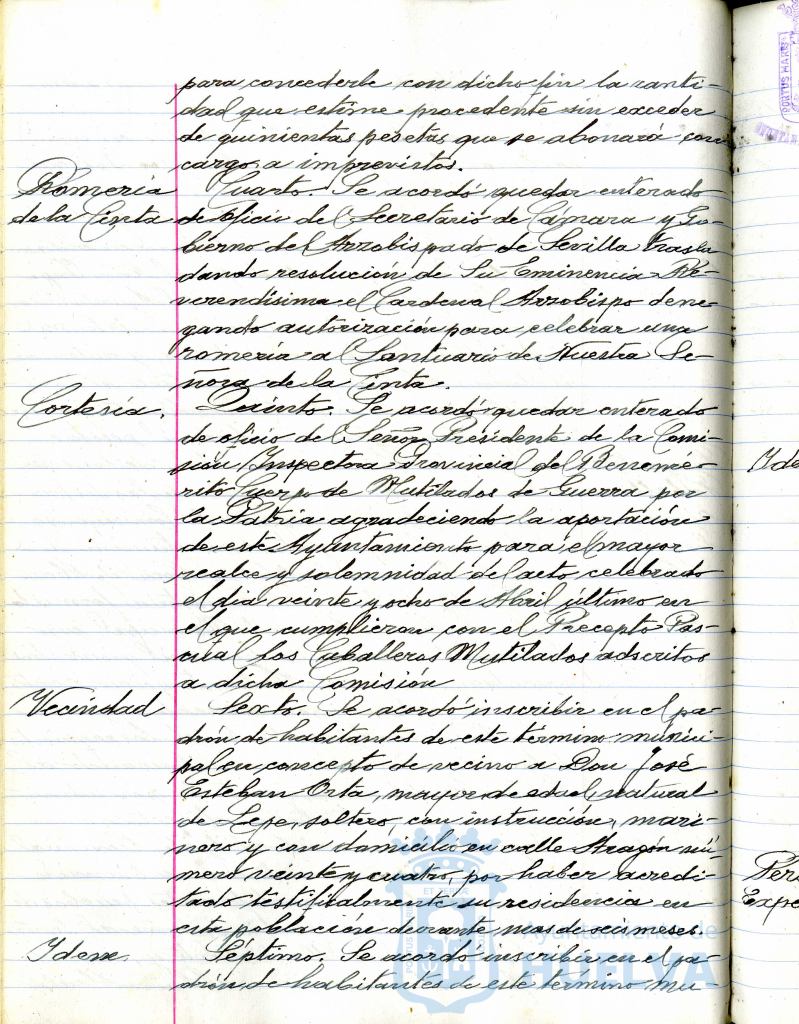 para concederle con dicho fin la canti-
dad que estime procedente sin exceder
de quinientas pesetas que se abonará con
cargo a imprevistos.
Romería
de la Cinta
Cuarto. Se acordó quedar enterado
de oficio del Secretario de Cámara y Go-
bierno del Arzobispado de Sevilla trasla-
dando resolución de Su Eminencia Re-
verendísima el Cardenal Arzobispo dene-
gando autorización para celebrar una
romería al Santuario de Nuestra Se-
ñora de la Cinta.
Cortesía.
Quinto. Se acordó quedar enterado
de oficio del Señor Presidente de la Comi-
sión Inspectora Provincial del Benemé-
rito Cuerpo de Mutilados de Guerra por
la Patria agradeciendo la aportación
de este Ayuntamiento para el mayor
realce y solemnidad del acto celebrado
el dia veinte y ocho de Abril último en
el que cumplieron con el Precepto Pas-
cual los Caballeros Mutilados adscritos
a dicha Comisión
Vecindad
Sexto. Se acordó inscribir en el pa-
drón de habitantes de este término munici-
pal en concepto de vecino a Don José
Esteban Orta, mayor de edad, natural
de Lepe, soltero, con instrucción, mari-
nero y con domicilio en calle Aragón nú-
mero veinte y cuatro, por haber acredi-
tado testifical­mente su residencia en
esta población durante mas de seis meses.
Idem.
Séptimo. Se acordó inscribir en el pa-
drón de habitantes de este término mu-
Ide
Per
Expe
PORTUS MARIS
Ayuntamiento de
HUELVA